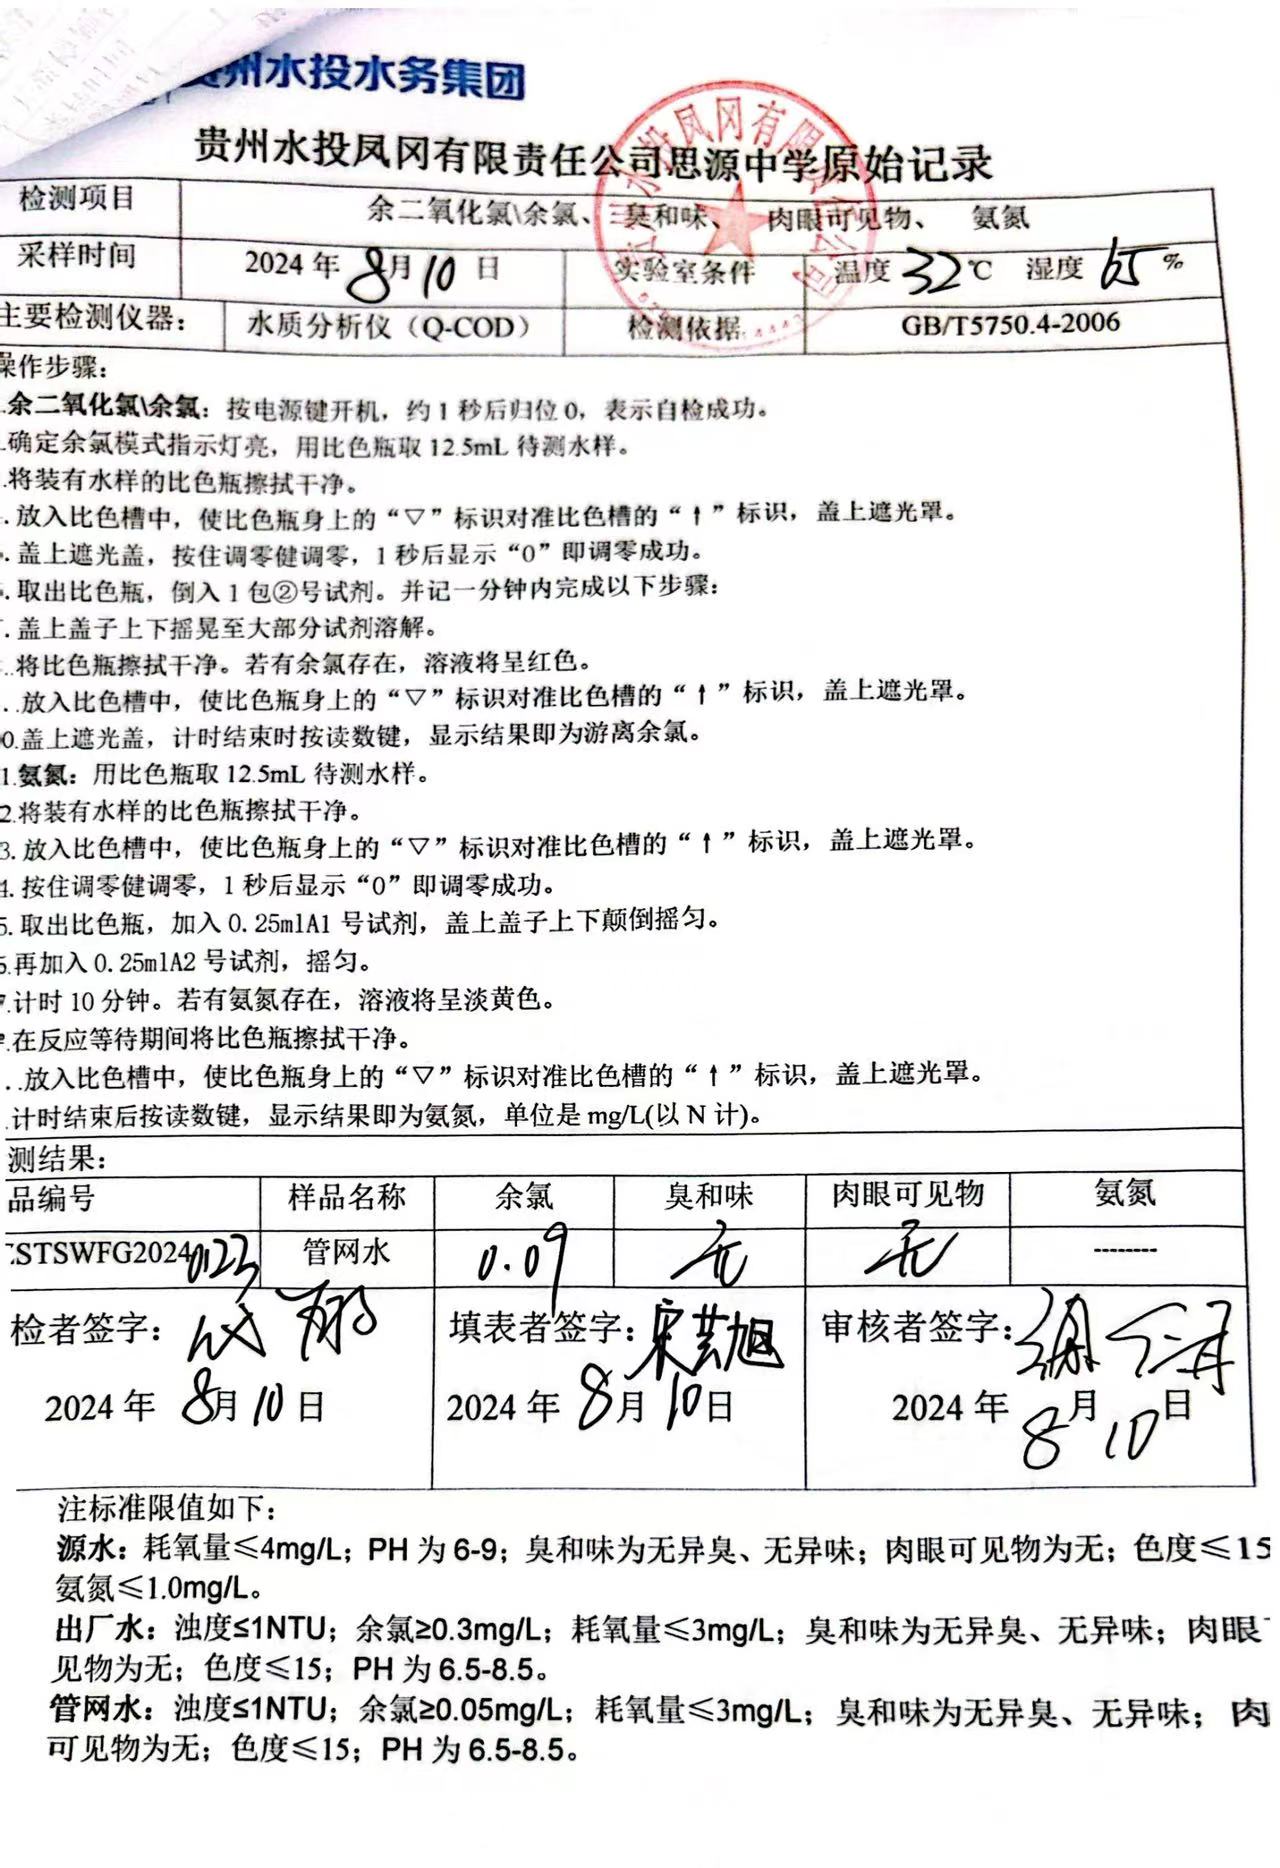 贵州水投水务集团
贵州水投凤冈有限责任公司思源中学原始记录
检测项目 余二氧化氯\余氯、 臭和味、 肉眼可见物、 氨氮
采样时间 2024年8月10日 实验室条件 温度32℃ 湿度65%
主要检测仪器： 水质分析仪（Q-COD） 检测依据 GB/T5750.4-2006
操作步骤：
.余二氧化氯\余氯：按电源键开机，约1秒后归位0，表示自检成功。
.确定余氯模式指示灯亮，用比色瓶取12.5mL待测水样。
.将装有水样的比色瓶擦拭干净。
.放入比色槽中，使比色瓶身上的“▽”标识对准比色槽的“↑”标识，盖上遮光罩。
.盖上遮光盖，按住调零健调零，1秒后显示“0”即调零成功。
.取出比色瓶，倒入1包②号试剂。并记一分钟内完成以下步骤：
.盖上盖子上下摇晃至大部分试剂溶解。
.将比色瓶擦拭干净。若有余氯存在，溶液将呈红色。
.放入比色槽中，使比色瓶身上的“▽”标识对准比色槽的“↑”标识，盖上遮光罩。
0.盖上遮光盖，计时结束时按读数键，显示结果即为游离余氯。
1.氨氮：用比色瓶取12.5mL待测水样。
2.将装有水样的比色瓶擦拭干净。
3.放入比色槽中，使比色瓶身上的“▽”标识对准比色槽的“↑”标识，盖上遮光罩。
4.按住调零健调零，1秒后显示“0”即调零成功。
5.取出比色瓶，加入0.25mlA1号试剂，盖上盖子上下颠倒摇匀。
6.再加入0.25mlA2号试剂，摇匀。
7.计时10分钟。若有氨氮存在，溶液将呈淡黄色。
.在反应等待期间将比色瓶擦拭干净。
.放入比色槽中，使比色瓶身上的“▽”标识对准比色槽的“↑”标识，盖上遮光罩。
.计时结束后按读数键，显示结果即为氨氮，单位是mg/L(以N计)。
测结果：
品编号 样品名称 余氯 臭和味 肉眼可见物 氨氮
STSWFG20240123 管网水 0.09 无 无 --------
检者签字： 填表者签字：宋芸旭 审核者签字：
2024年8月10日 2024年8月10日 2024年8月10日
注标准限值如下：
源水：耗氧量≤4mg/L；PH为6-9；臭和味为无异臭、无异味；肉眼可见物为无；色度≤15
氨氮≤1.0mg/L。
出厂水：浊度≤1NTU；余氯≥0.3mg/L；耗氧量≤3mg/L；臭和味为无异臭、无异味；肉眼
见物为无；色度≤15；PH为6.5-8.5。
管网水：浊度≤1NTU；余氯≥0.05mg/L；耗氧量≤3mg/L；臭和味为无异臭、无异味；肉
可见物为无；色度≤15；PH为6.5-8.5。